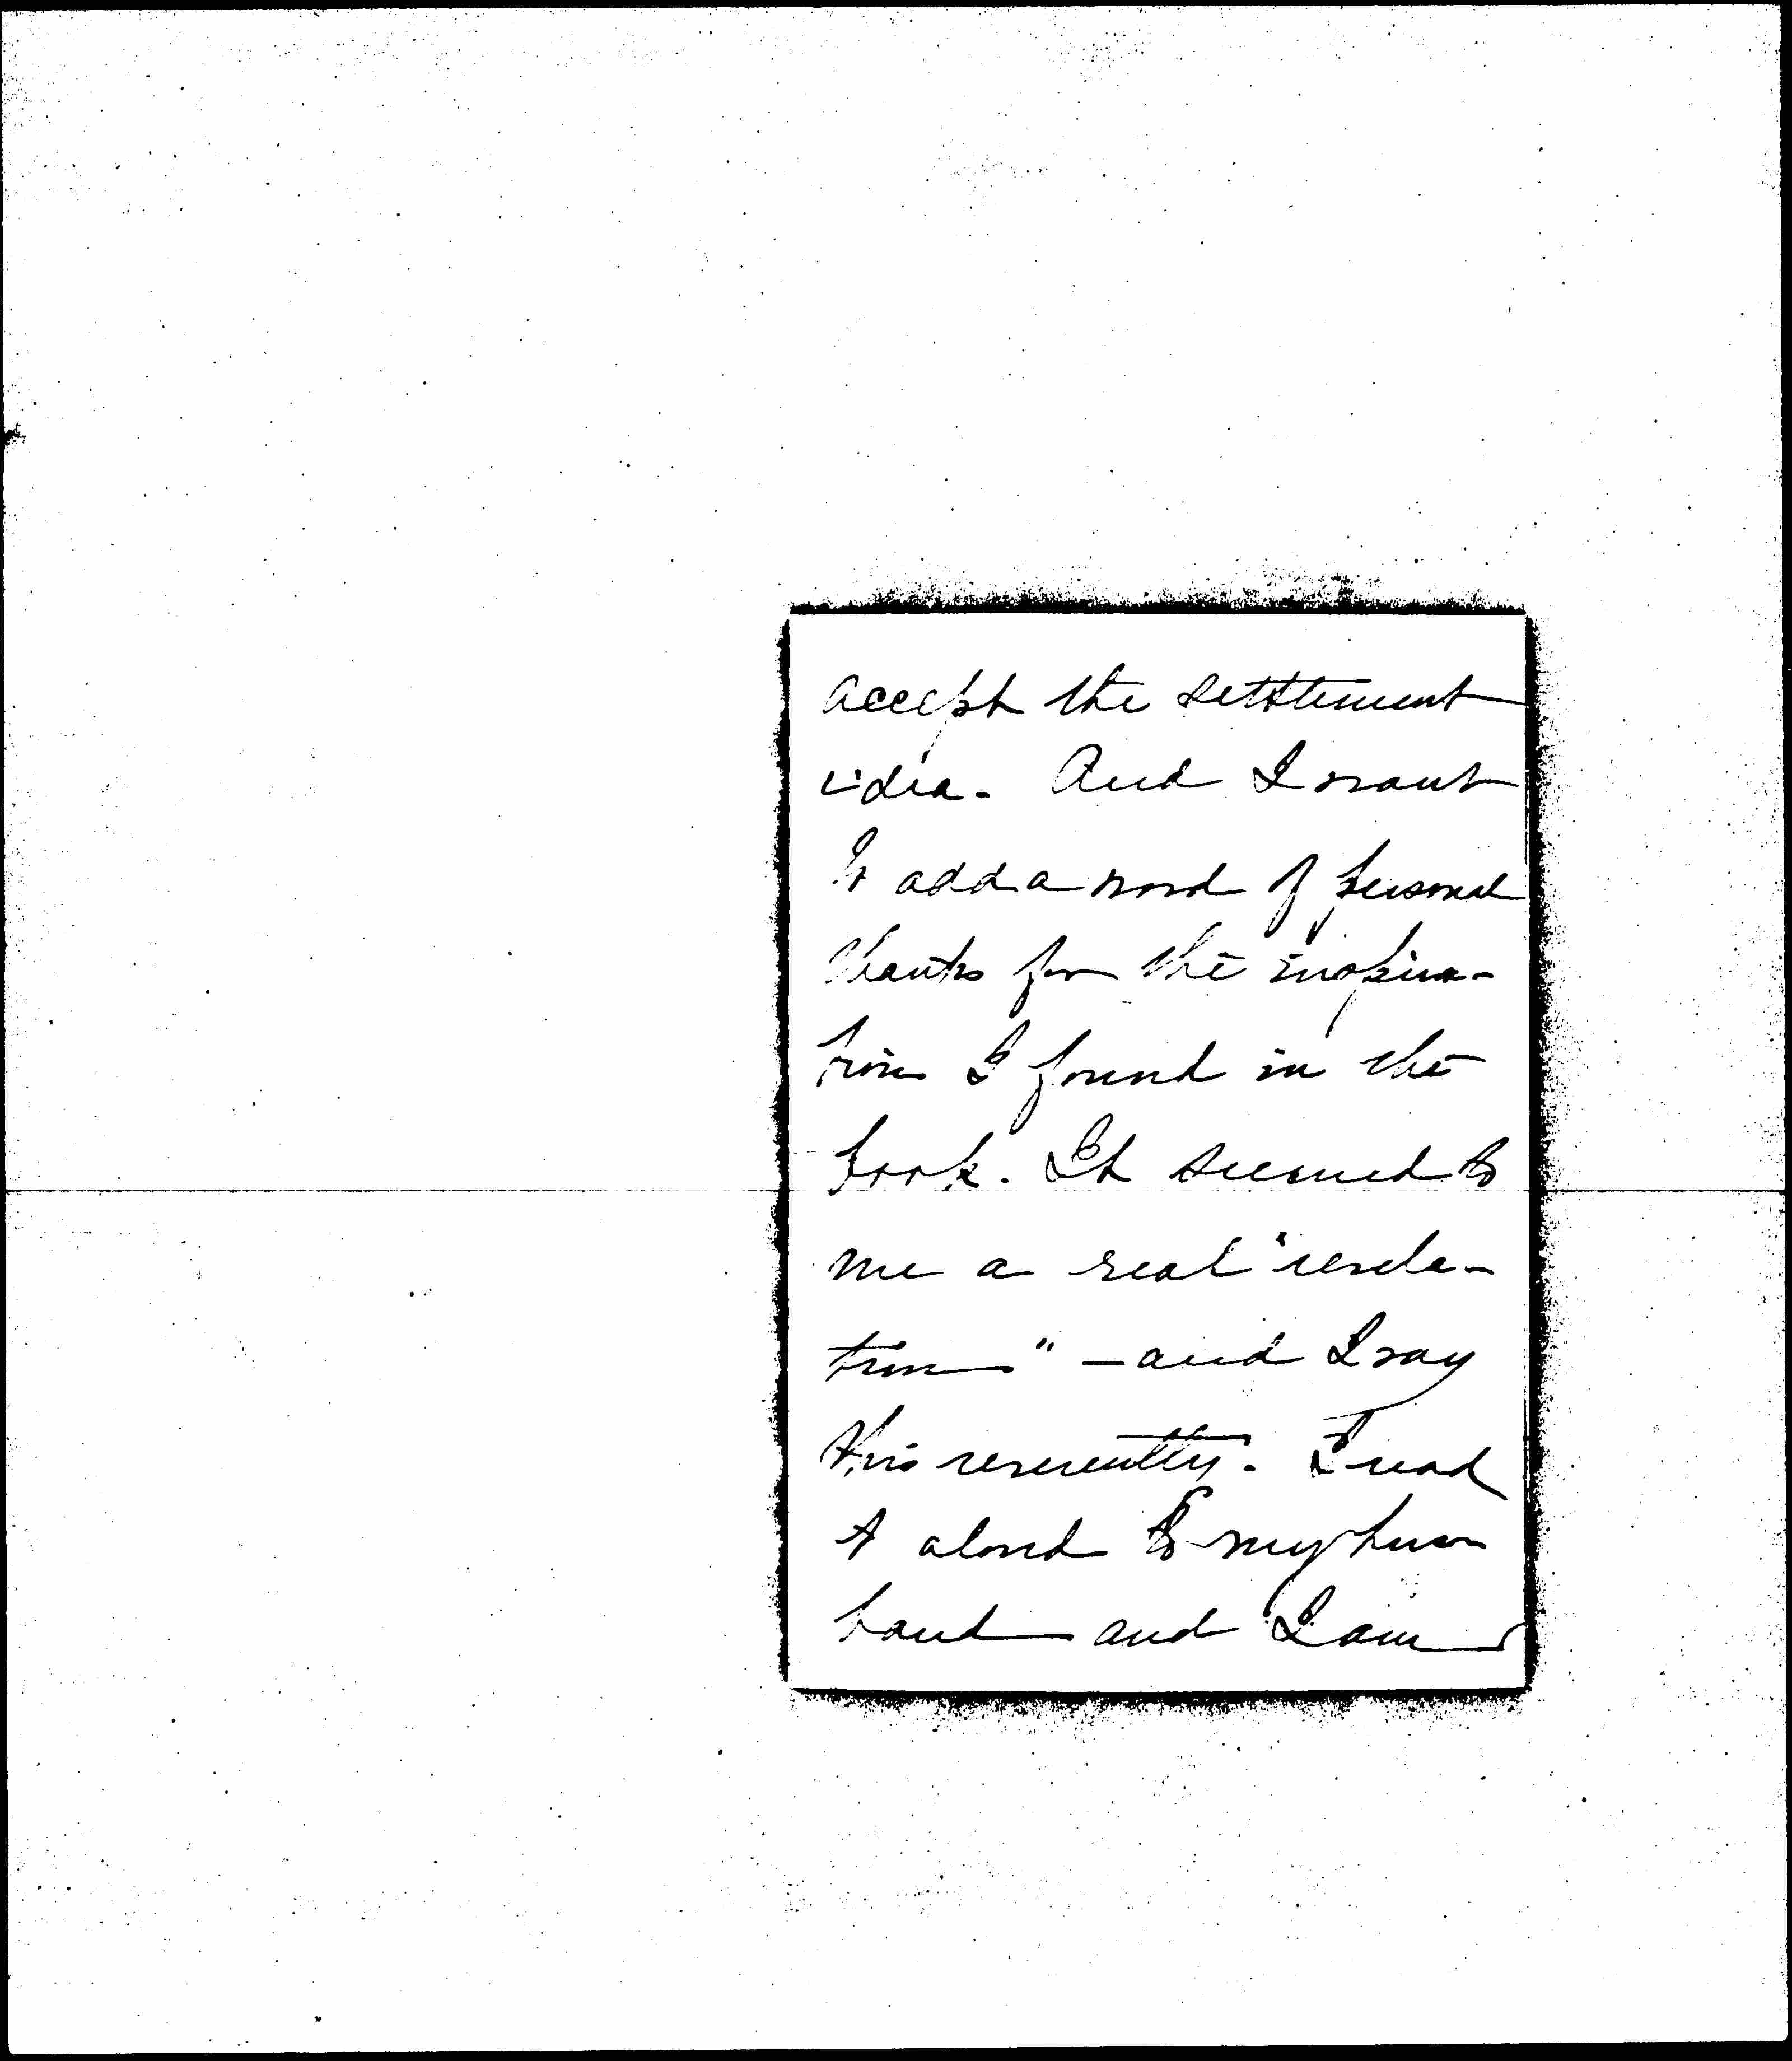 accept the settlement
idea. And I want
to add a word of personal
thanks for the inspira-
tion I found in the
book. It seemed to
me a real "revela-
tion" - and I say
this reverently. I read
it aloud to my hus
band and I am